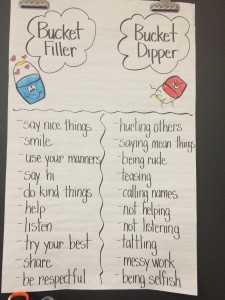 Bucket
Filler
-say nice things
-smile
-use your manners
-say hi
-do kind things
-help
-listen
-try your best
-share
-be respectful
Bucket
Dipper
-hurting others
-saying mean things
-being rude
-teasing
-calling names
-not helping
-not listening
-tattling
-messy work
-being selfish